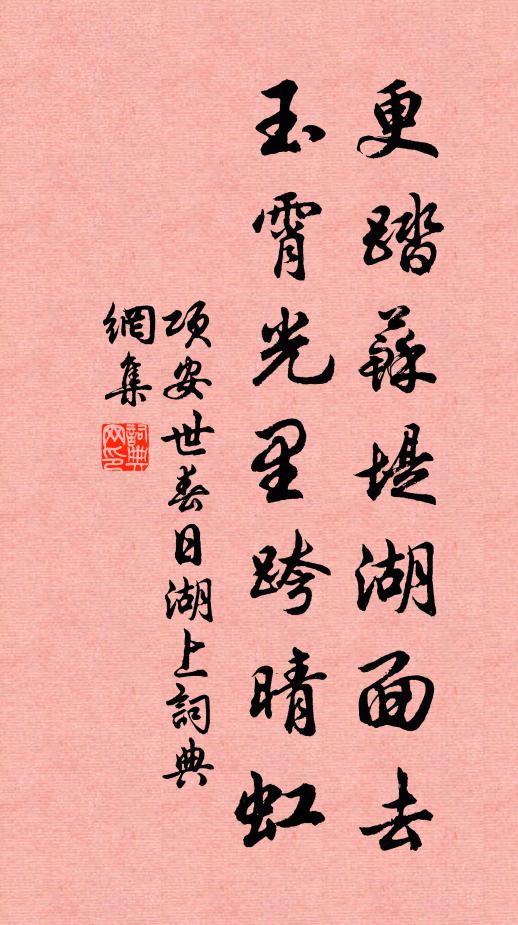 更踏蘇堤湖面去
玉霄光里跨晴虹
項安世春日湖上詞典
網集
詞典
网印